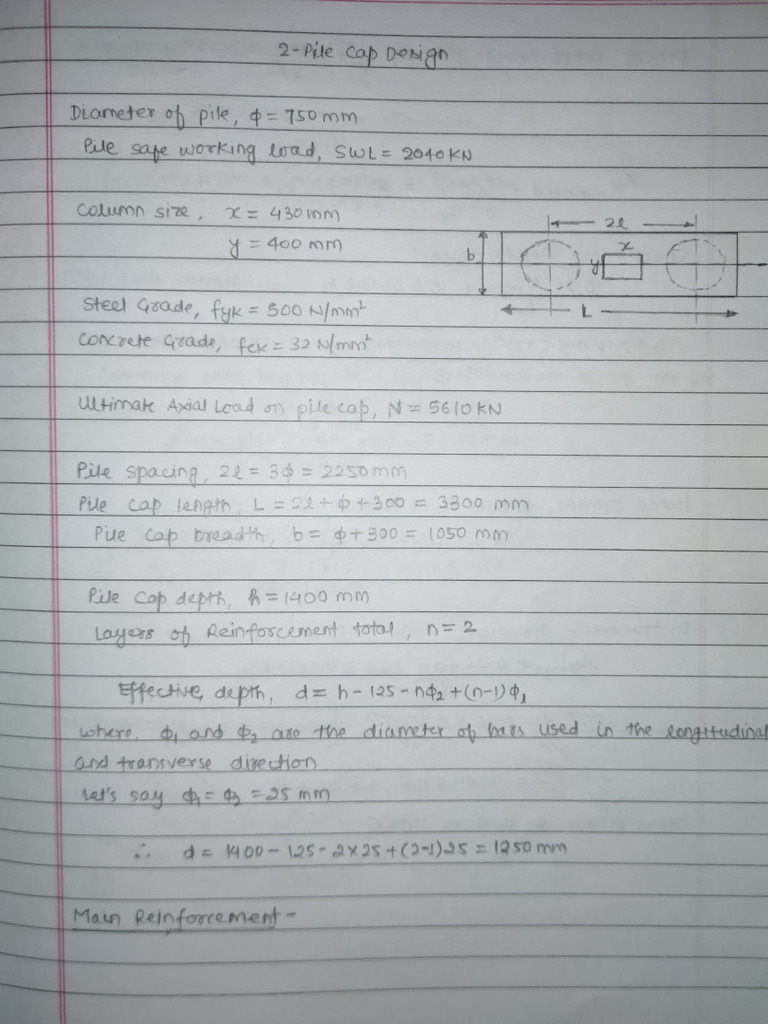 2-Pile Cap Design
Diameter of pile, ϕ = 750 mm
Pile safe working load, SWL = 2040 KN
Column size, x = 430 mm
y = 400 mm
2l
x
b
y
L
Steel Grade, fyk = 500 N/mm²
Concrete Grade, fck = 32 N/mm²
Ultimate Axial Load on pile cap, N = 5610 KN
Pile spacing, 2l = 3ϕ = 2250 mm
Pile cap length, L = 2l + ϕ + 300 = 3300 mm
Pile cap breadth, b = ϕ + 300 = 1050 mm
Pile cap depth, h = 1400 mm
Layers of Reinforcement total, n = 2
Effective depth, d = h - 125 - nϕ₂ + (n-1)ϕ₁
where, ϕ₁ and ϕ₂ are the diameter of bars used in the longitudinal
and transverse direction
Let's say ϕ₁ = ϕ₂ = 25 mm
∴ d = 1400 - 125 - 2×25 + (2-1)25 = 1250 mm
Main Reinforcement -